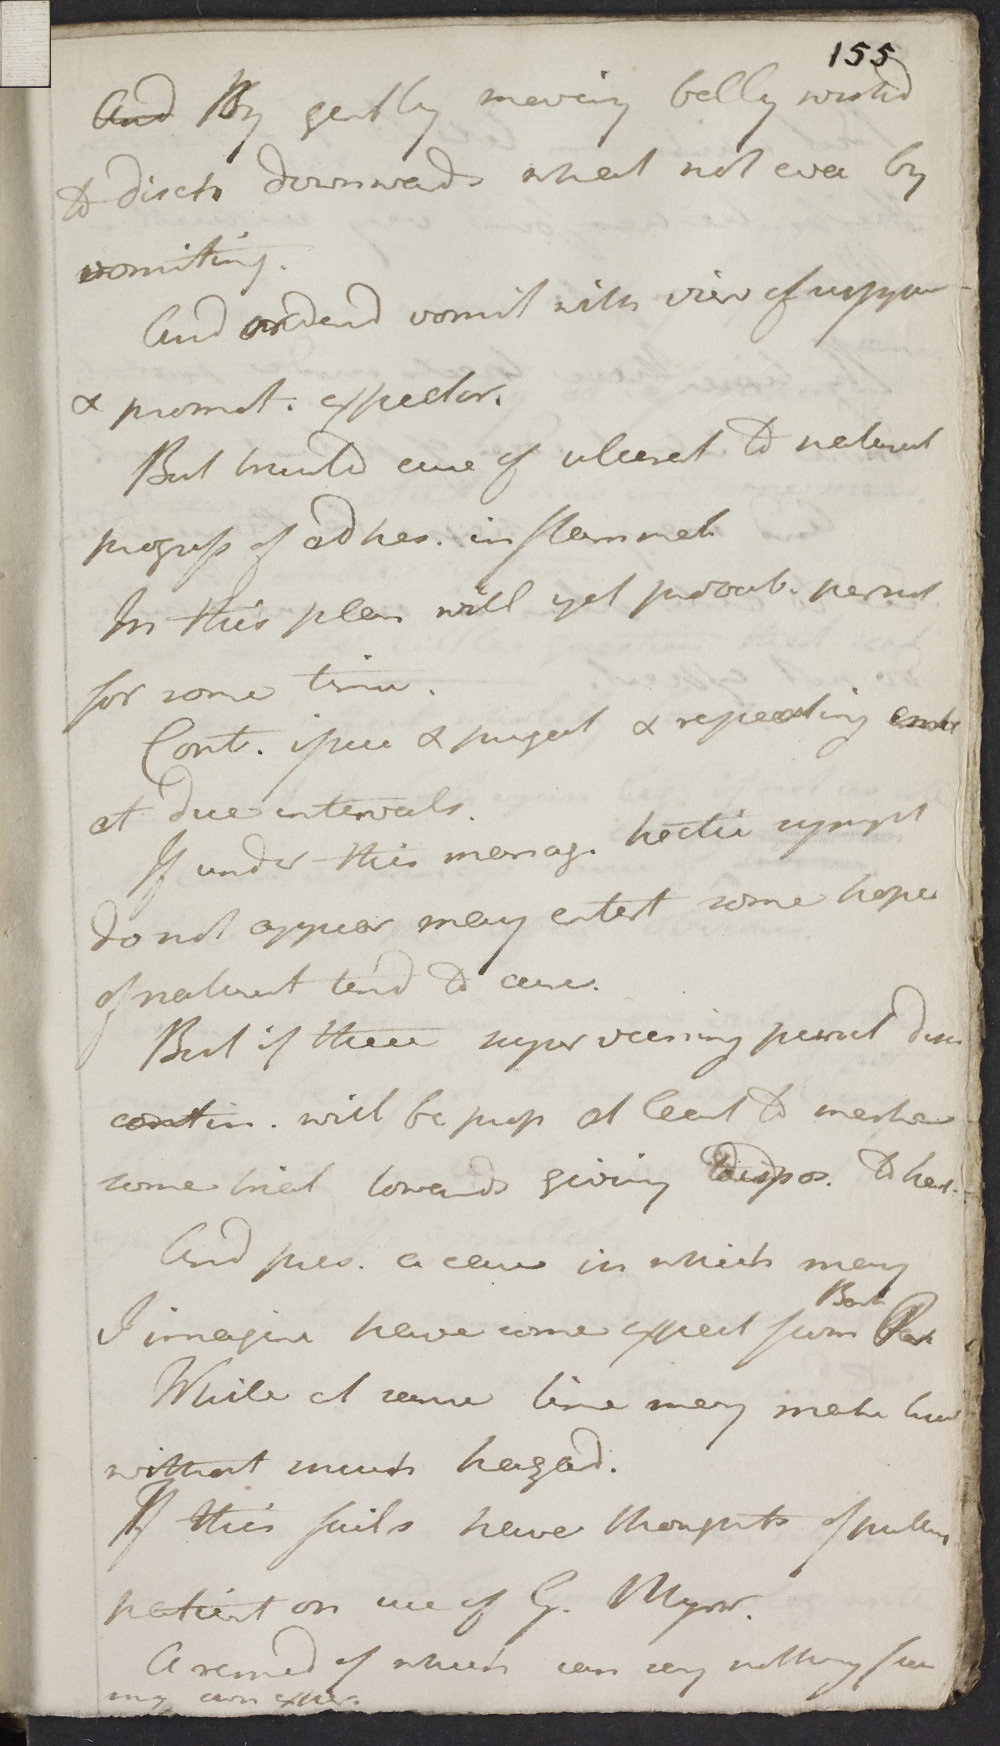 155
And By gently moving belly wishd
to disch downwards what not evac by
vomiting.
And ordend vomit with view of
& promot. expector.
But trustd cure of ulcerat to natural
progress of adhes. inflammat.
In this plan will yet probab. persist
for some time.
Cont. ipec & purgat & repeating
at due intervals.
If under this manag. hectic sympt
do not appear may entert some hopes
of natural tend to cure.
But if these supervening purul disc
contin. will be prop at least to make
some trial towards giving dispos. to heal.
And pres. a case in which may
Bark
I imagine have some effect from
While at same time may make trial
without much hazard.
If this fails have thoughts of putting
patient on use of G. Myrr.
A remed of which can say nothing from
my own exper.